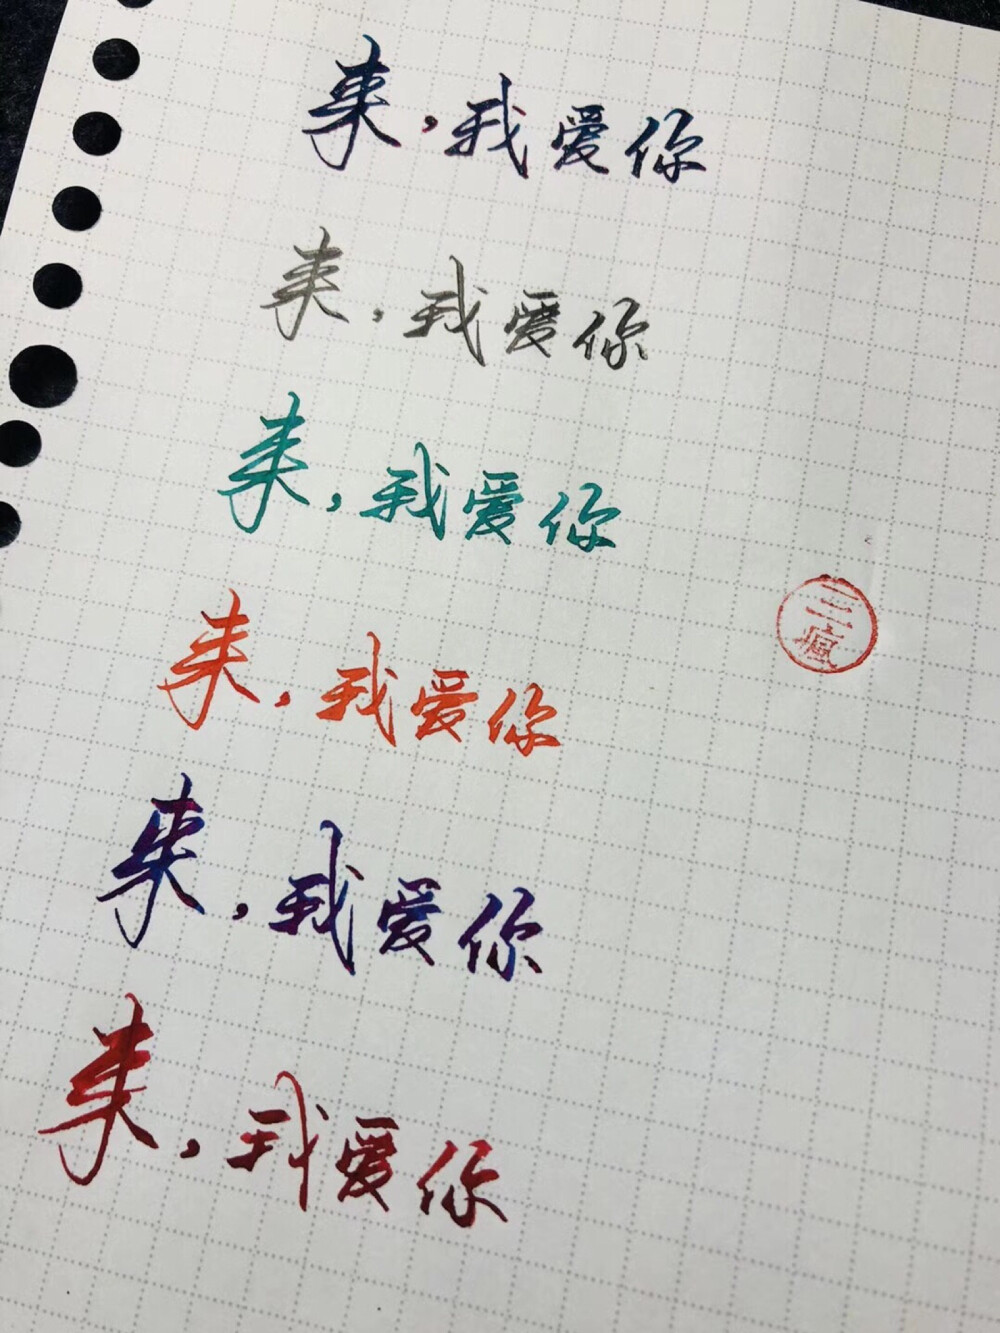 来，我爱你
来，我爱你
来，我爱你
来，我爱你
三瘋
来，我爱你
来，我爱你